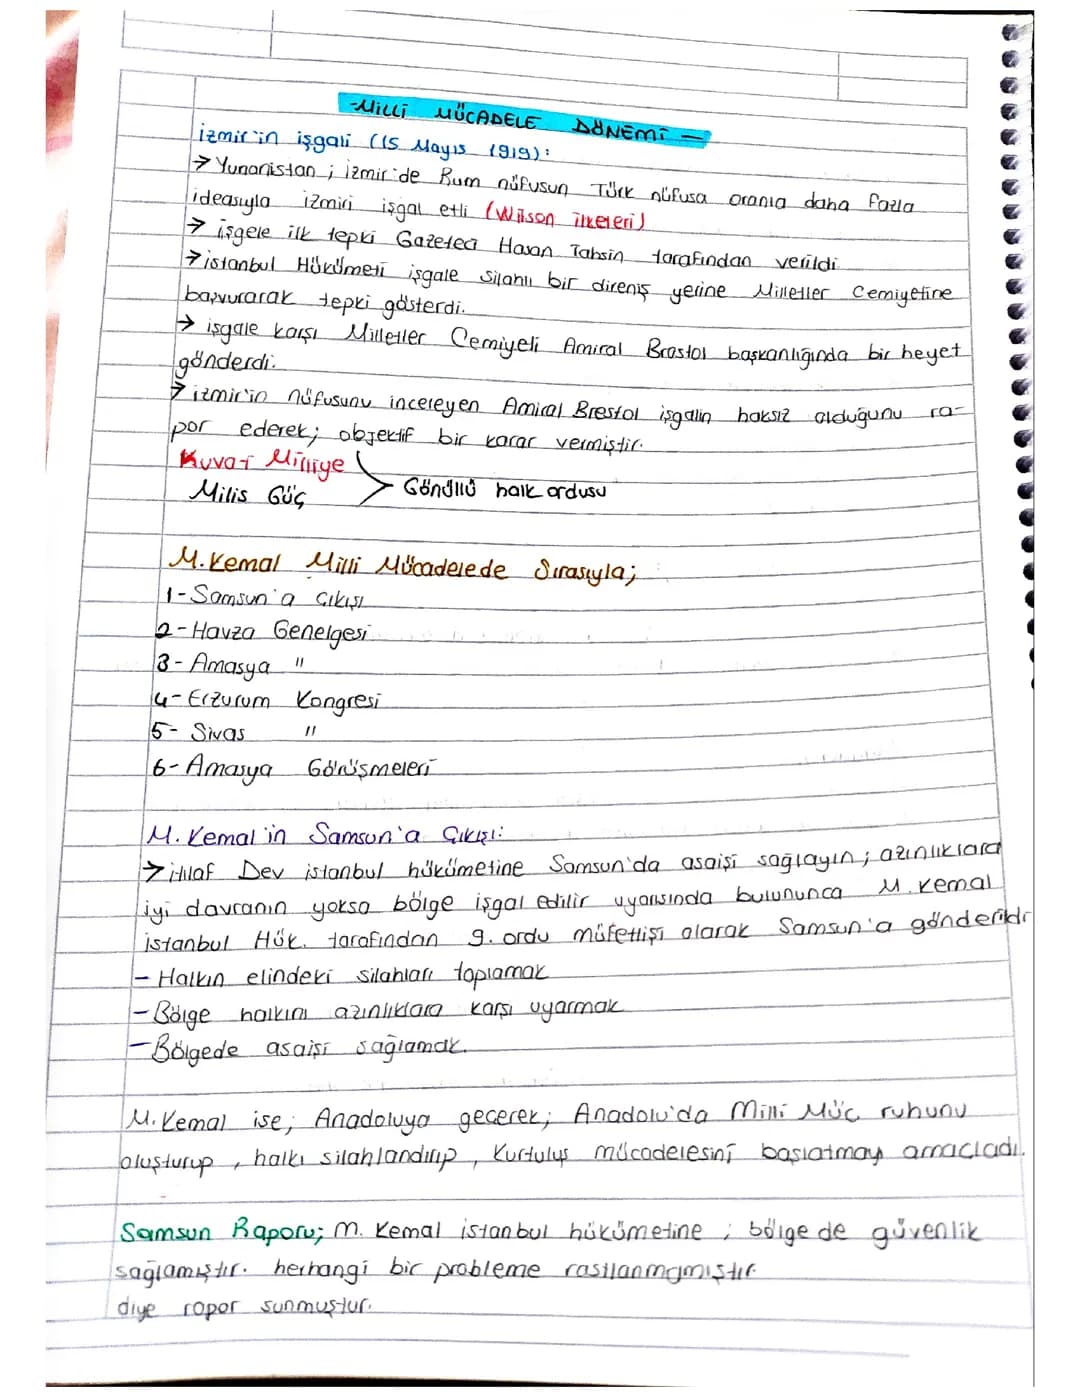 -Milli MÜCADELE DÖNEMİ -
İzmir'in işgali (15 Mayıs 1919):
→ Yunanistan ; izmir'de Rum nüfusun Türk nüfusa oranla daha fazla
ideasıyla izmiri işgal etti (Wilson ilkeleri)
→ işgele ilk tepki Gazeteci Hasan Tahsin tarafından verildi
→ istanbul Hükümeti işgale silahlı bir direniş yerine Milletler Cemiyetine
başvurarak tepki gösterdi.
→ işgale karşı Milletler Cemiyeti Amiral Brostol başkanlığında bir heyet
gönderdi.
→ izmir'in nüfusunu inceleyen Amiral Brestol işgalin haksız olduğunu ra-
por ederek; objektif bir karar vermiştir.
Kuvai Milliye
Milis Güç > Gönüllü halk ordusu
M.Kemal Milli Mücadelede Sırasıyla;
1-Samsun'a Çıkışı
2-Havza Genelgesi
3-Amasya "
4-Erzurum Kongresi
5- Sivas "
6-Amasya Görüşmeleri
M. Kemal'in Samsun'a Çıkışı:
→ itilaf Dev istanbul hükümetine Samsun'da asaişi sağlayın; azınlıklara
iyi davranın yoksa bölge işgal edilir uyarısında bulununca M. Kemal
istanbul Hük. tarafından 9. ordu müfettişi olarak Samsun'a gönderildi
- Halkın elindeki silahları toplamak
- Bölge halkını azınlıklara karşı uyarmak
- Bölgede asaişi sağlamak.
M.Kemal ise; Anadoluya geçerek; Anadolu'da Milli Müc ruhunu
oluşturup , halkı silahlandırıp , Kurtuluş mücadelesini başlatmay amaçladı.
Samsun Raporu; M. Kemal istanbul hükümetine ; bölgede güvenlik
sağlamıştır. herhangi bir probleme rastlanmamıştır.
diye rapor sunmuştur.